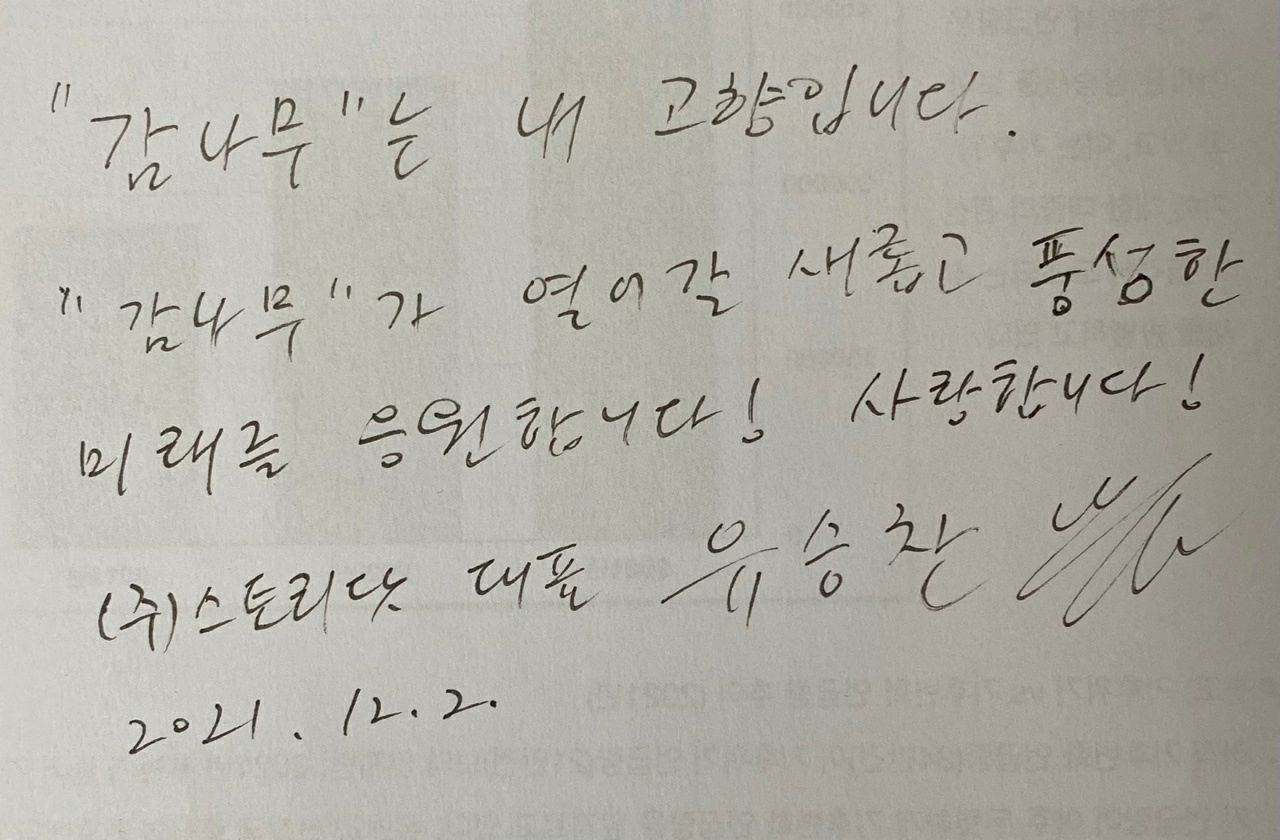 "감나무"는 내 고향입니다.
"감나무"가 열어갈 새롭고 풍성한
미래를 응원합니다! 사랑합니다!
(주)스토리닷 대표 유승찬
2021. 12. 2.